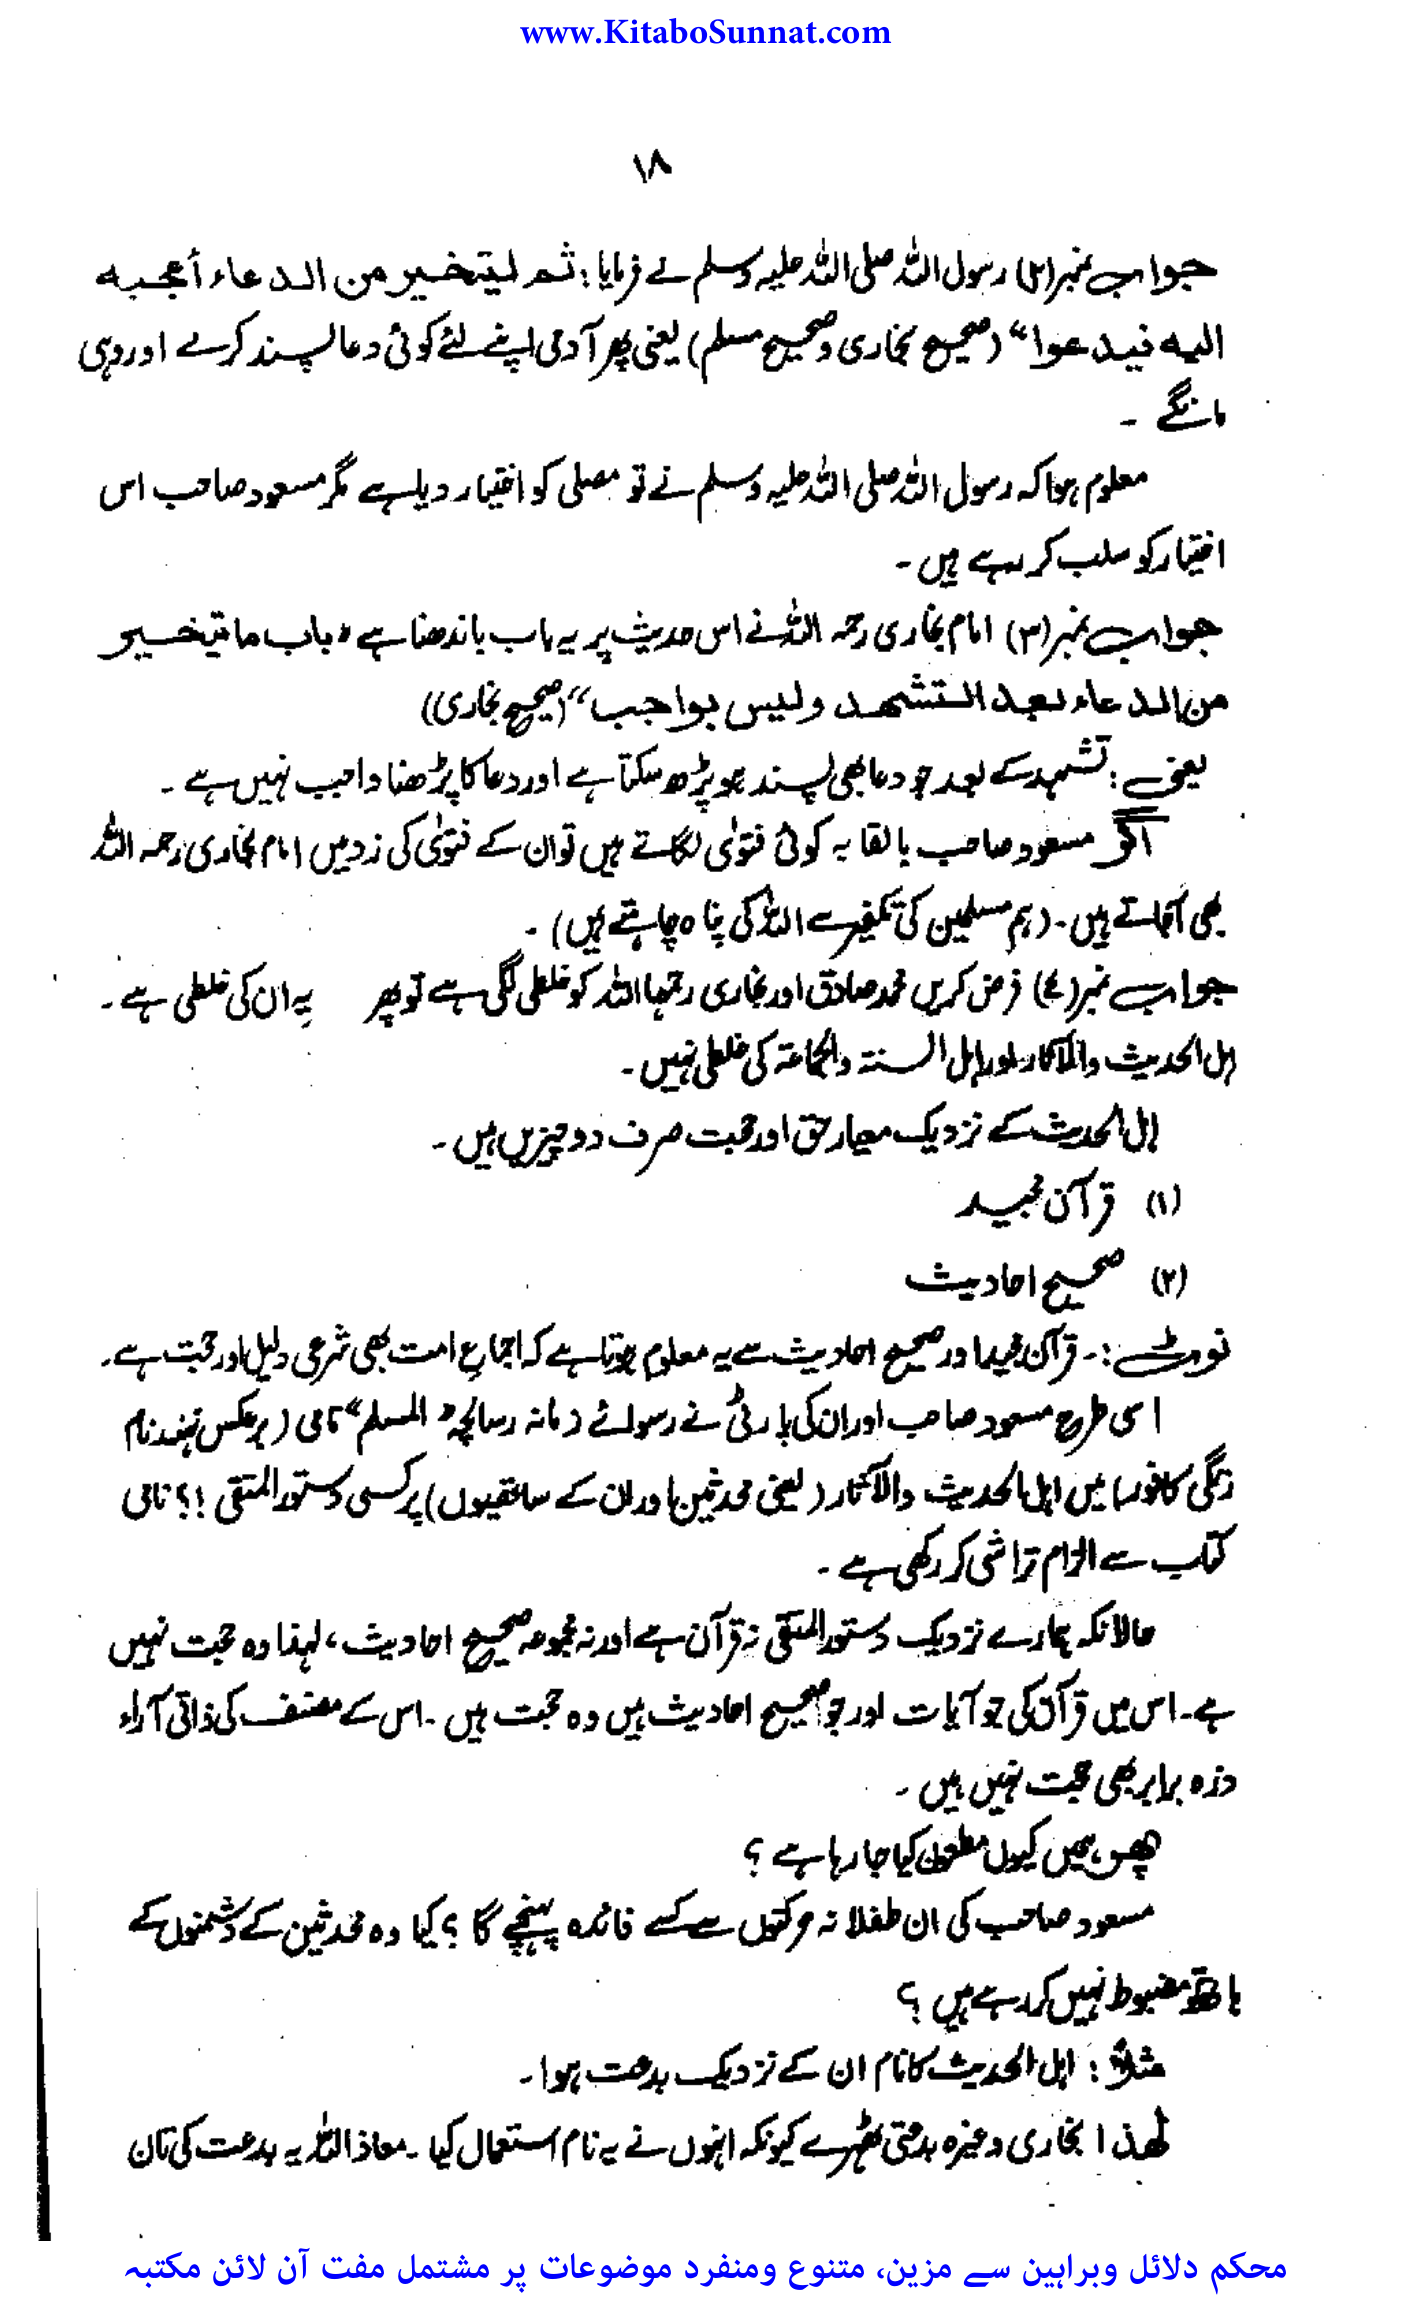 www.KitaboSunnat.com
۱۸
جواب نمبر(۲) رسول اللہ صلی اللہ علیہ وسلم نے فرمایا: ثم لیتخیر من الدعاء أعجبه
الیه فیدعوا“ (صحیح بخاری وصحیح مسلم) یعنی پھر آدمی اپنے لئے کوئی دعا پسند کرے اور وہی
مانگے ۔
معلوم ہوا کہ رسول اللہ صلی اللہ علیہ وسلم نے تو مصلی کو اختیار دیا ہے مگر مسعود صاحب اس
اختیار کو سلب کر رہے ہیں ۔
جواب نمبر(۳) امام بخاری رحمہ اللہ نے اس حدیث پر یہ باب باندھا ہے «باب ما یتخیر
من الدعاء بعد التشهد ولیس بواجب“ (صحیح بخاری)
یعنی: تشہد کے بعد جو دعا بھی پسند ہو پڑھ سکتا ہے اور دعا کا پڑھنا واجب نہیں ہے ۔
اگر مسعود صاحب بالقابہ کوئی فتویٰ لگاتے ہیں تو ان کے فتویٰ کی زد میں امام بخاری رحمہ اللہ
بھی آجاتے ہیں ۔ (ہم مسلمین کی تکفیر سے اللہ کی پناہ چاہتے ہیں) ۔
جواب نمبر(٤) فرض کریں محمد صادق اور بخاری رحمہما اللہ کو غلطی لگی ہے تو پھر یہ ان کی غلطی ہے ۔
اہل الحدیث والآثار اور اہل السنۃ والجماعۃ کی غلطی نہیں ۔
اہل الحدیث کے نزدیک معیار حق اور حجت صرف دو چیزیں ہیں ۔
(۱) قرآن مجید
(۲) صحیح احادیث
نوٹ :۔ قرآن مجید اور صحیح احادیث سے یہ معلوم ہوتا ہے کہ اجماع امت بھی شرعی دلیل اور حجت ہے ۔
اسی طرح مسعود صاحب اور ان کی پارٹی نے رسوائے زمانہ رسالچہ «المسلم“ نامی (برعکس نہند نام
زنگی کافور) میں اہل الحدیث والآثار (یعنی محدثین اور ان کے ساتھیوں) پر کسی دستور المتقی !؟ نامی
کتاب سے الزام تراشی کر رکھی ہے ۔
حالانکہ ہمارے نزدیک دستور المتقی نہ قرآن ہے اور نہ مجموعہ صحیح احادیث، لہذا وہ حجت نہیں
ہے ۔ اس میں قرآن کی جو آیات اور جو صحیح احادیث ہیں وہ حجت ہیں ۔ اس کے مصنف کی ذاتی آراء
ذرہ برابر بھی حجت نہیں ہیں ۔
پھر ہمیں کیوں مطعون کیا جا رہا ہے ؟
مسعود صاحب کی ان طفلانہ حرکتوں سے کسے فائدہ پہنچے گا ؟ کیا وہ محدثین کے دشمنوں کے
ہاتھ مضبوط نہیں کر رہے ہیں ؟
مثلاً : اہل الحدیث کا نام ان کے نزدیک بدعت ہوا ۔
لهذا بخاری وغیرہ بدعتی ٹھہرے کیونکہ انہوں نے یہ نام استعمال کیا ۔ معاذ اللہ یہ بدعت کی تان
محکم دلائل وبراہین سے مزین، متنوع ومنفرد موضوعات پر مشتمل مفت آن لائن مکتبہ